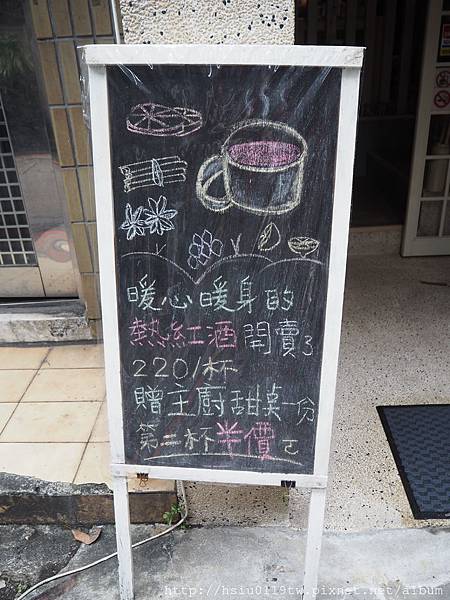 暖心暖身的
熱紅酒開賣了
220/杯
贈主廚甜點一份
第二杯半價
http://hsiu0119tw.pixnet.net/album